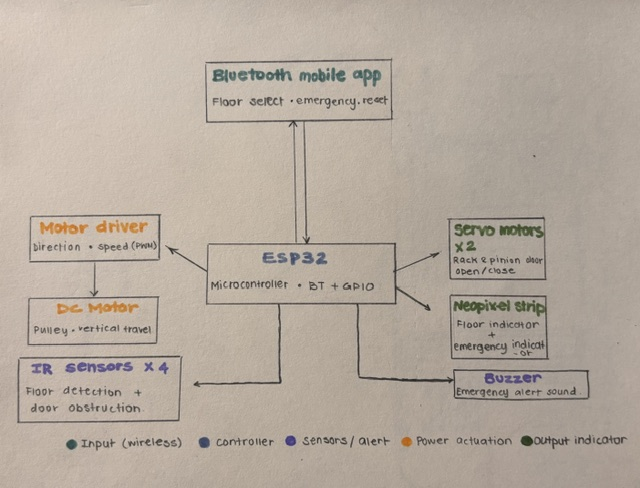 Bluetooth mobile app
Floor select • emergency.reset
Motor driver
Direction • speed (PWM)
Servo motors
x2
Rack & pinion door
open/close
ESP32
Microcontroller • BT + GPIO
DC Motor
Pulley • vertical travel
Neopixel strip
Floor indicator
+
emergency indicat
-or
IR sensors x 4
Floor detection +
door obstruction.
Buzzer
Emergency alert sound.
Input (wireless)
controller
Sensors/alert
Power actuation
Output indicator